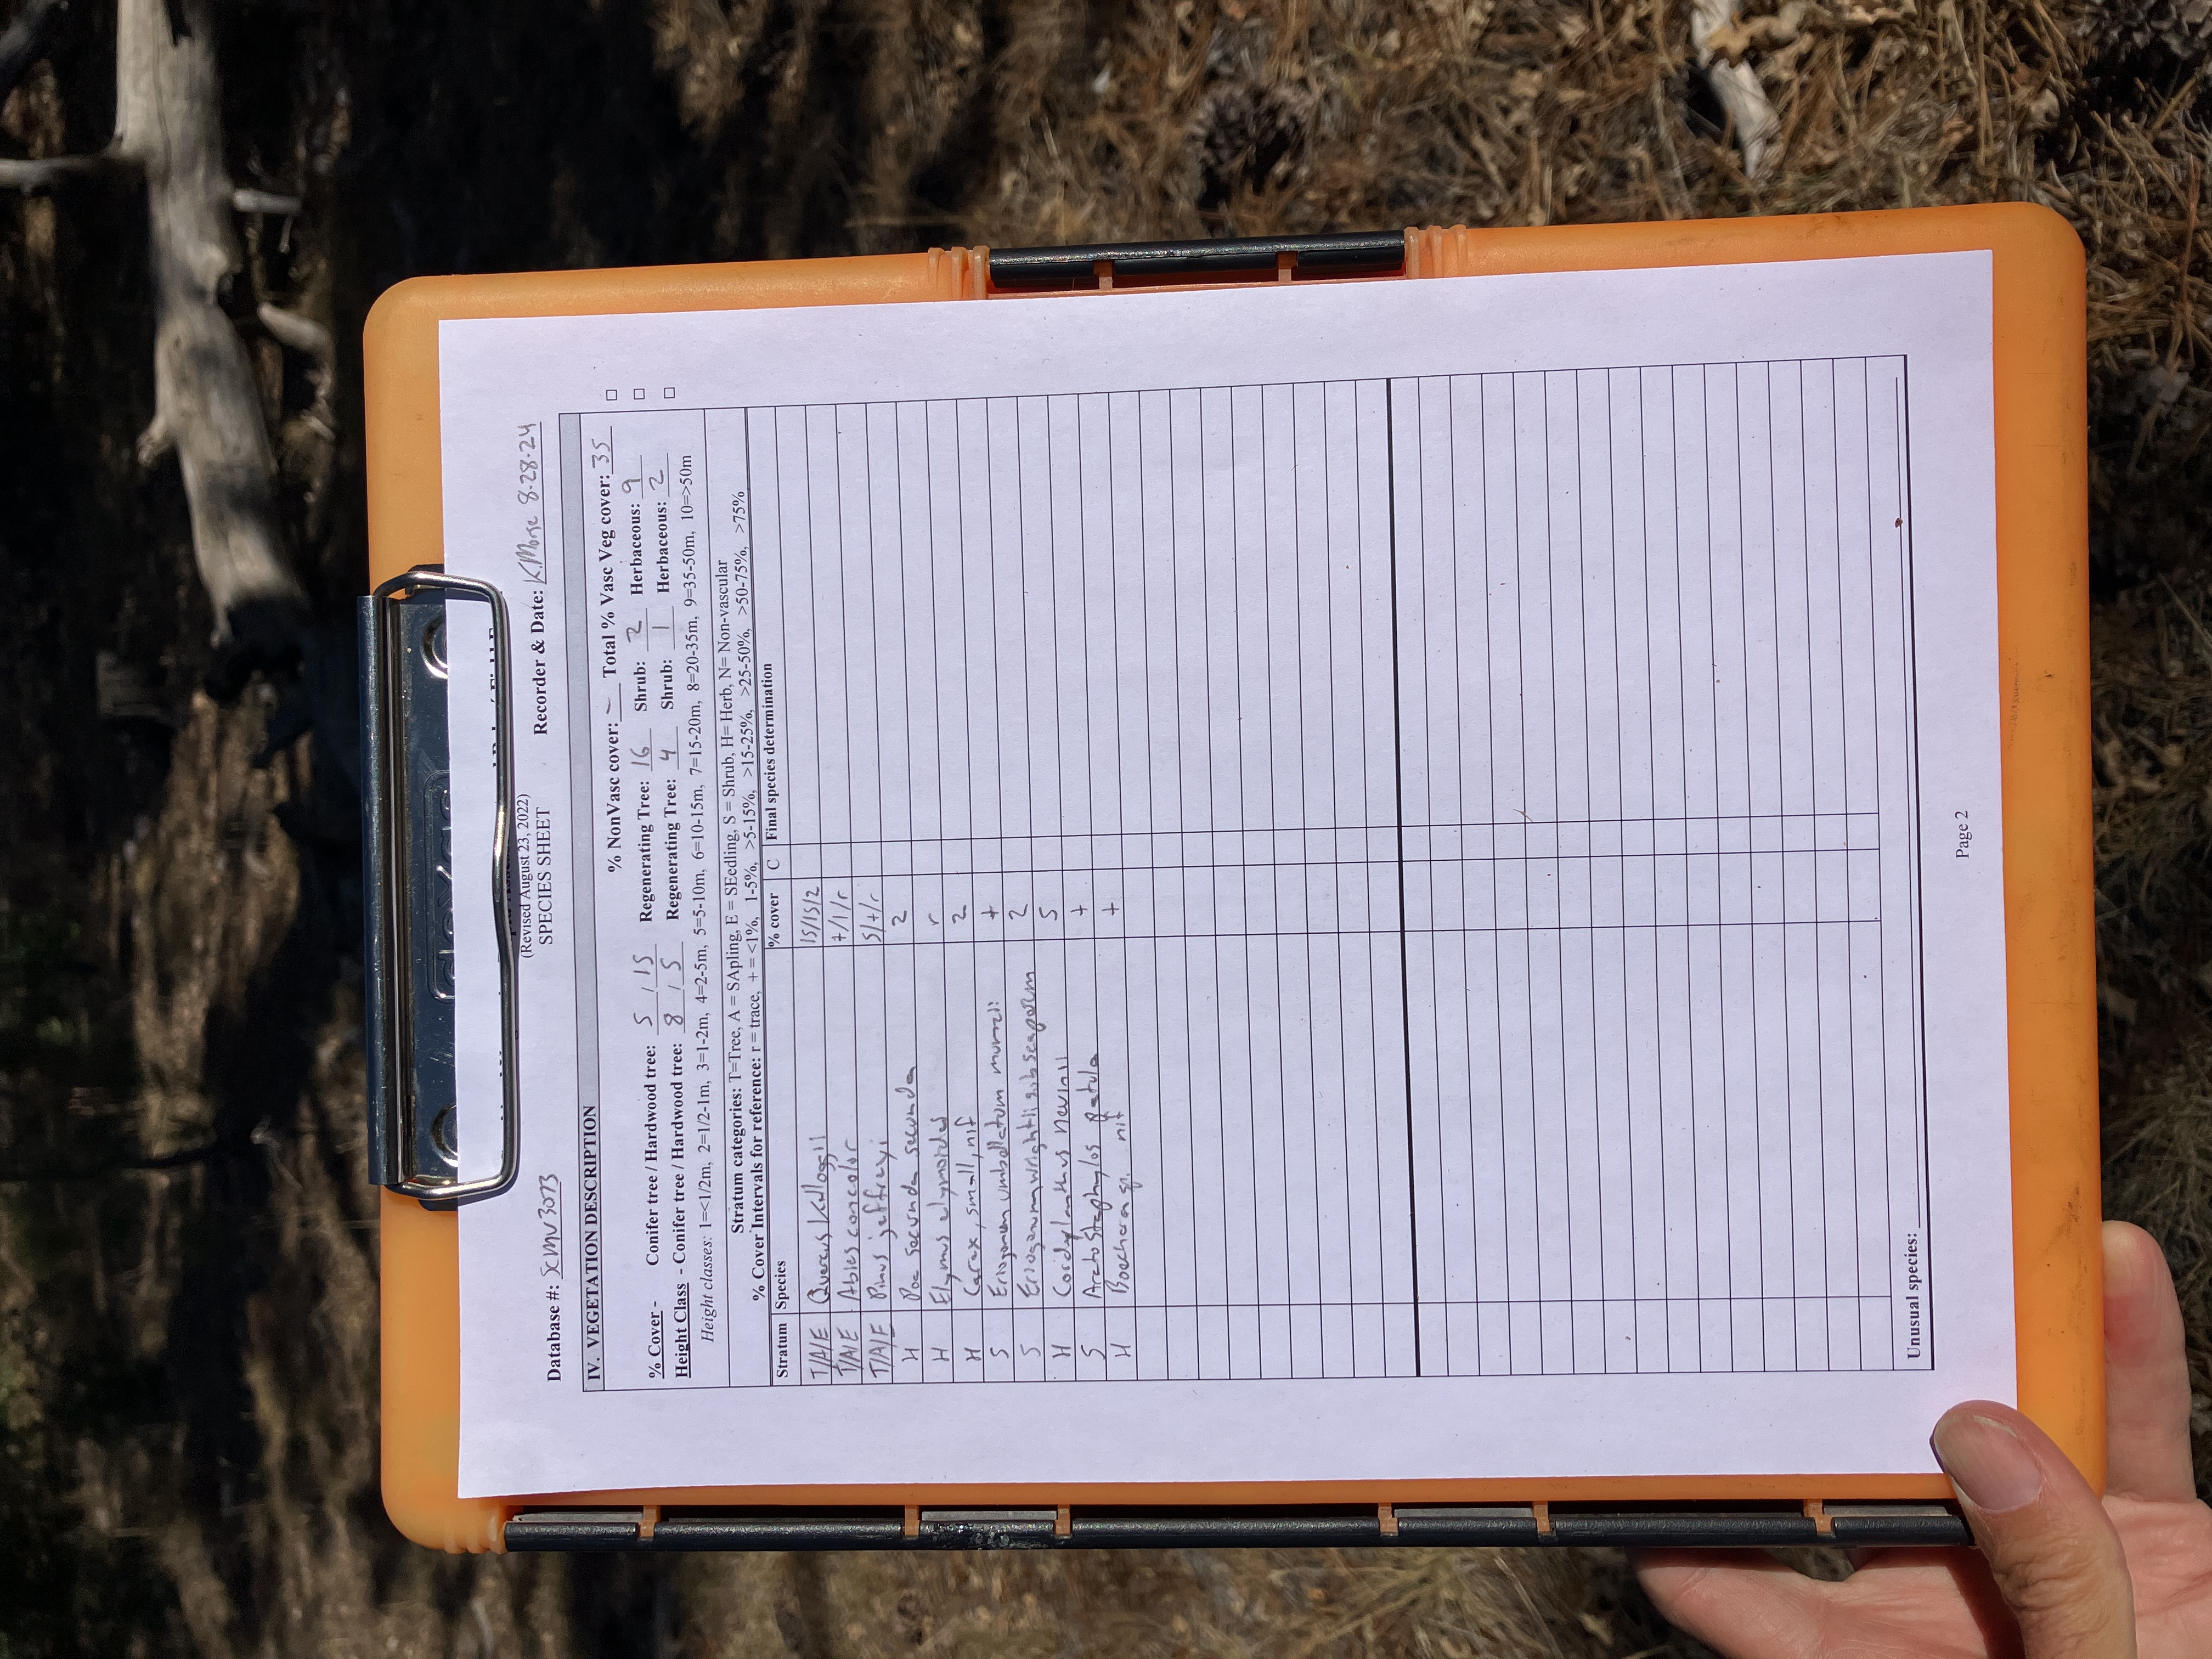 (Revised August 23, 2022)
SPECIES SHEET
Database #: SCMV3073 Recorder & Date: K.Morse 8-28-24
IV. VEGETATION DESCRIPTION
% NonVasc cover: – Total % Vasc Veg cover: 35 □
% Cover - Conifer tree / Hardwood tree: 5 / 15 Regenerating Tree: 16 Shrub: 2 Herbaceous: 9 □
Height Class - Conifer tree / Hardwood tree: 8 / 5 Regenerating Tree: 4 Shrub: 1 Herbaceous: 2 □
Height classes: 1=<1/2m, 2=1/2-1m, 3=1-2m, 4=2-5m, 5=5-10m, 6=10-15m, 7=15-20m, 8=20-35m, 9=35-50m, 10=>50m
Stratum categories: T=Tree, A = SApling, E = SEedling, S = Shrub, H= Herb, N= Non-vascular
% Cover Intervals for reference: r = trace, + = <1%, 1-5%, >5-15%, >15-25%, >25-50%, >50-75%, >75%
Stratum Species % cover C Final species determination
T/A/E Quercus kelloggii 15/15/2
T/A/E Abies concolor +/1/r
T/A/E Pinus jeffreyi 5/+/r
H Poa secunda secunda 2
H Elymus elymoides r
H Carex, small, nif 2
S Eriogonum umbellatum munzii +
S Eriogonum wrightii subscaposum 2
H Cordylanthus nevinii 5
S Arctostaphylos patula +
H Boechera sp. nif +
Unusual species:
Page 2